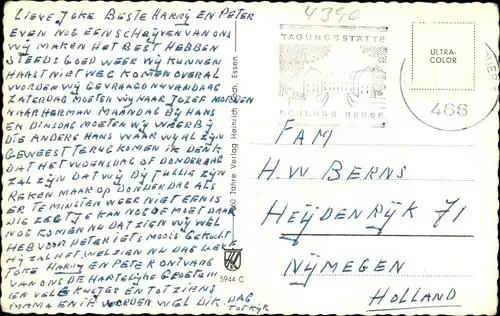 LIEVE JOKE BESTE HARRY EN PETER
EVEN NOG EEN SCHRIJVEN VAN ONS
WIJ MAKEN HET BEST HEBBEN
STEEDS GOED WEER WIJ KUNNEN
HAAST NIET WEG KOMEN OVERAL
WORDEN WIJ GEVRAAGD NU VANDAAG
ZATERDAG MOETEN WIJ NAAR JOZEF MORGEN
NAAR HERMAN MAANDAG BIJ HANS
EN DINSDAG MOETEN WIJ WEER BIJ
DIE ANDERE HANS WAAR WIJ AL ZIJN
GEWEEST TERUG KOMEN IK DENK
DAT HET WOENSDAG OF DONDERDAG
ZAL ZIJN DAT WIJ BIJ JULLIE ZIJN
REKEN MAAR OP DONDERDAG ALS
ER TEMINSTEN WEER NIETS EN IS
DIE ZEGT JE KAN NOG OF MOET DAAR
NOG KOMEN NU DAT ZIEN WIJ WEL
HEB VOOR PETER IETS MOOIS GEKOCHT
HIJ ZAL HET WEL ZIEN NU DAG LIEVE
JOKE HARRY EN PETER ONTVANG
VAN ONS DE HARTELIJKE GROETEN
EN VELE KUSJES EN TOT ZIENS
MAMA EN IK WORDEN WEL DIK. DAG
TOT KIJK
60 Jahre Verlag Heinrich Koch, Essen
5944 C
4390
TAGUNGSSTÄTTE
SCHLOSS BERGE
466
ULTRA-
COLOR
FAM
H.W BERNS
HEIJDENRIJK 71
NIJMEGEN
HOLLAND